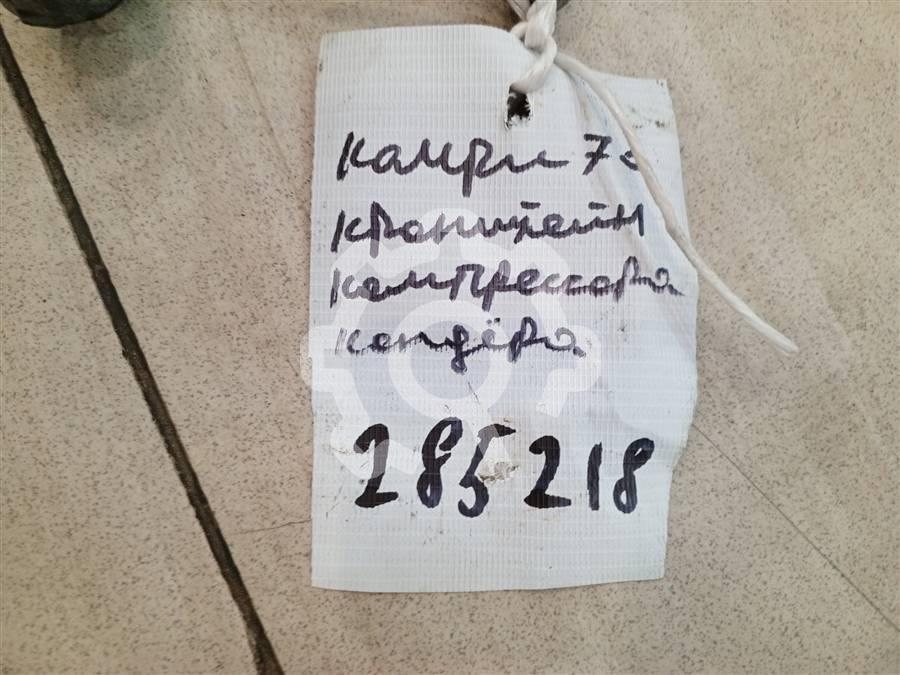 Камри 70
кронштейн
компрессора
кондёра
285218